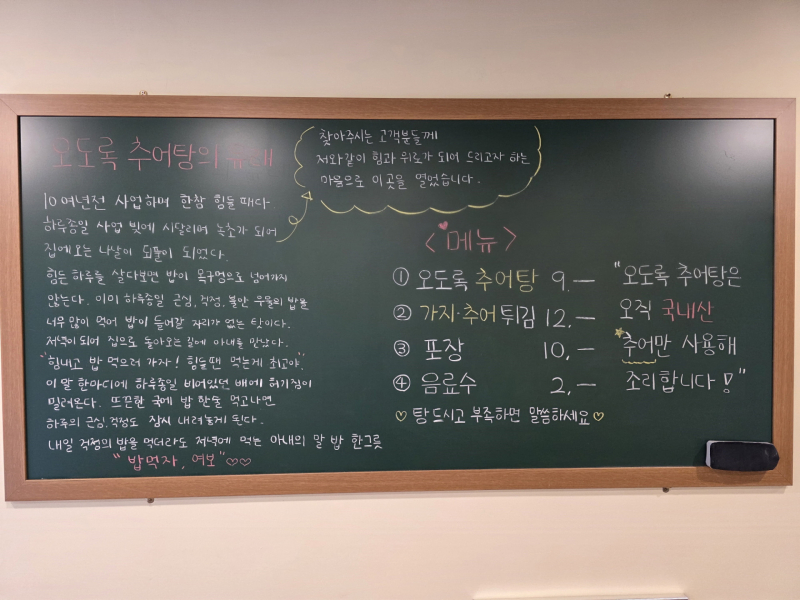 오도록 추어탕의 유래
10여년전 사업하며 한참 힘들때다
하루종일 사업 빚에 시달리며 녹초가 되어
집에오는 나날이 되풀이 되었다.
힘든 하루를 살다보면 밥이 목구멍으로 넘어가지
않는다. 이미 하루종일 근심, 걱정, 불안 우울의 밥을
너무 많이 먹어 밥이 들어갈 자리가 없는 탓이다.
저녁이 되어 집으로 돌아오는 길에 아내를 만났다.
"힘내고 밥 먹으러 가자! 힘들땐 먹는게 최고야."
이 말 한마디에 하루종일 비어있던 배에 허기짐이
밀려온다. 뜨끈한 국에 밥 한술 먹고나면
하루의 근심, 걱정도 잠시 내려놓게 된다.
내일 걱정의 밥을 먹더라도 저녁에 먹는 아내의 말 밥 한그릇
"밥먹자, 여보"♡♡
찾아주시는 고객분들께
저와같이 힘과 위로가 되어 드리고자 하는
마음으로 이곳을 열었습니다.
<메뉴>
① 오도록 추어탕 9.—
② 가지·추어튀김 12.—
③ 포장 10.—
④ 음료수 2.—
♡ 탕 드시고 부족하면 말씀하세요 ♡
"오도록 추어탕은
오직 국내산
추어만 사용해
조리합니다!"